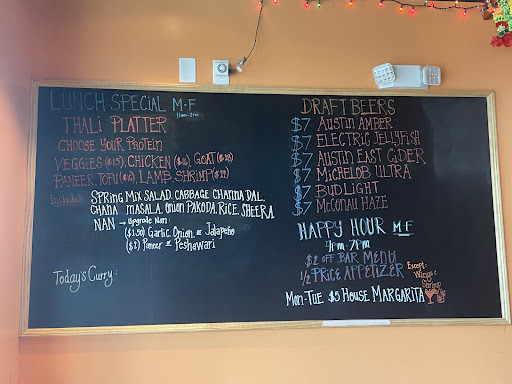 LUNCH SPECIAL M-F
11am-2pm
THALI PLATTER
CHOOSE YOUR PROTEIN
VEGGIES ($15), CHICKEN ($16), GOAT ($18)
PANEER, TOFU ($16), LAMB, SHRIMP ($19)
Includes: SPRING MIX SALAD, CABBAGE CHANNA DAL,
CHANA MASALA, ONION PAKODA, RICE, SHEERA
NAN → Upgrade Nan:
($1.50) Garlic, Onion, or Jalapeño
($2) Paneer or Peshawari
Today's Curry:
DRAFT BEERS
$7 AUSTIN AMBER
$7 ELECTRIC JELLYFISH
$7 AUSTIN EAST CIDER
$7 MICHELOB ULTRA
$7 BUD LIGHT
$7 MCCONAU HAZE
HAPPY HOUR M-F
4pm-7pm
$2 OFF BAR MENU
1/2 PRICE APPETIZER
Except:
Wings &
Shrimp
MON-TUE $5 HOUSE MARGARITA